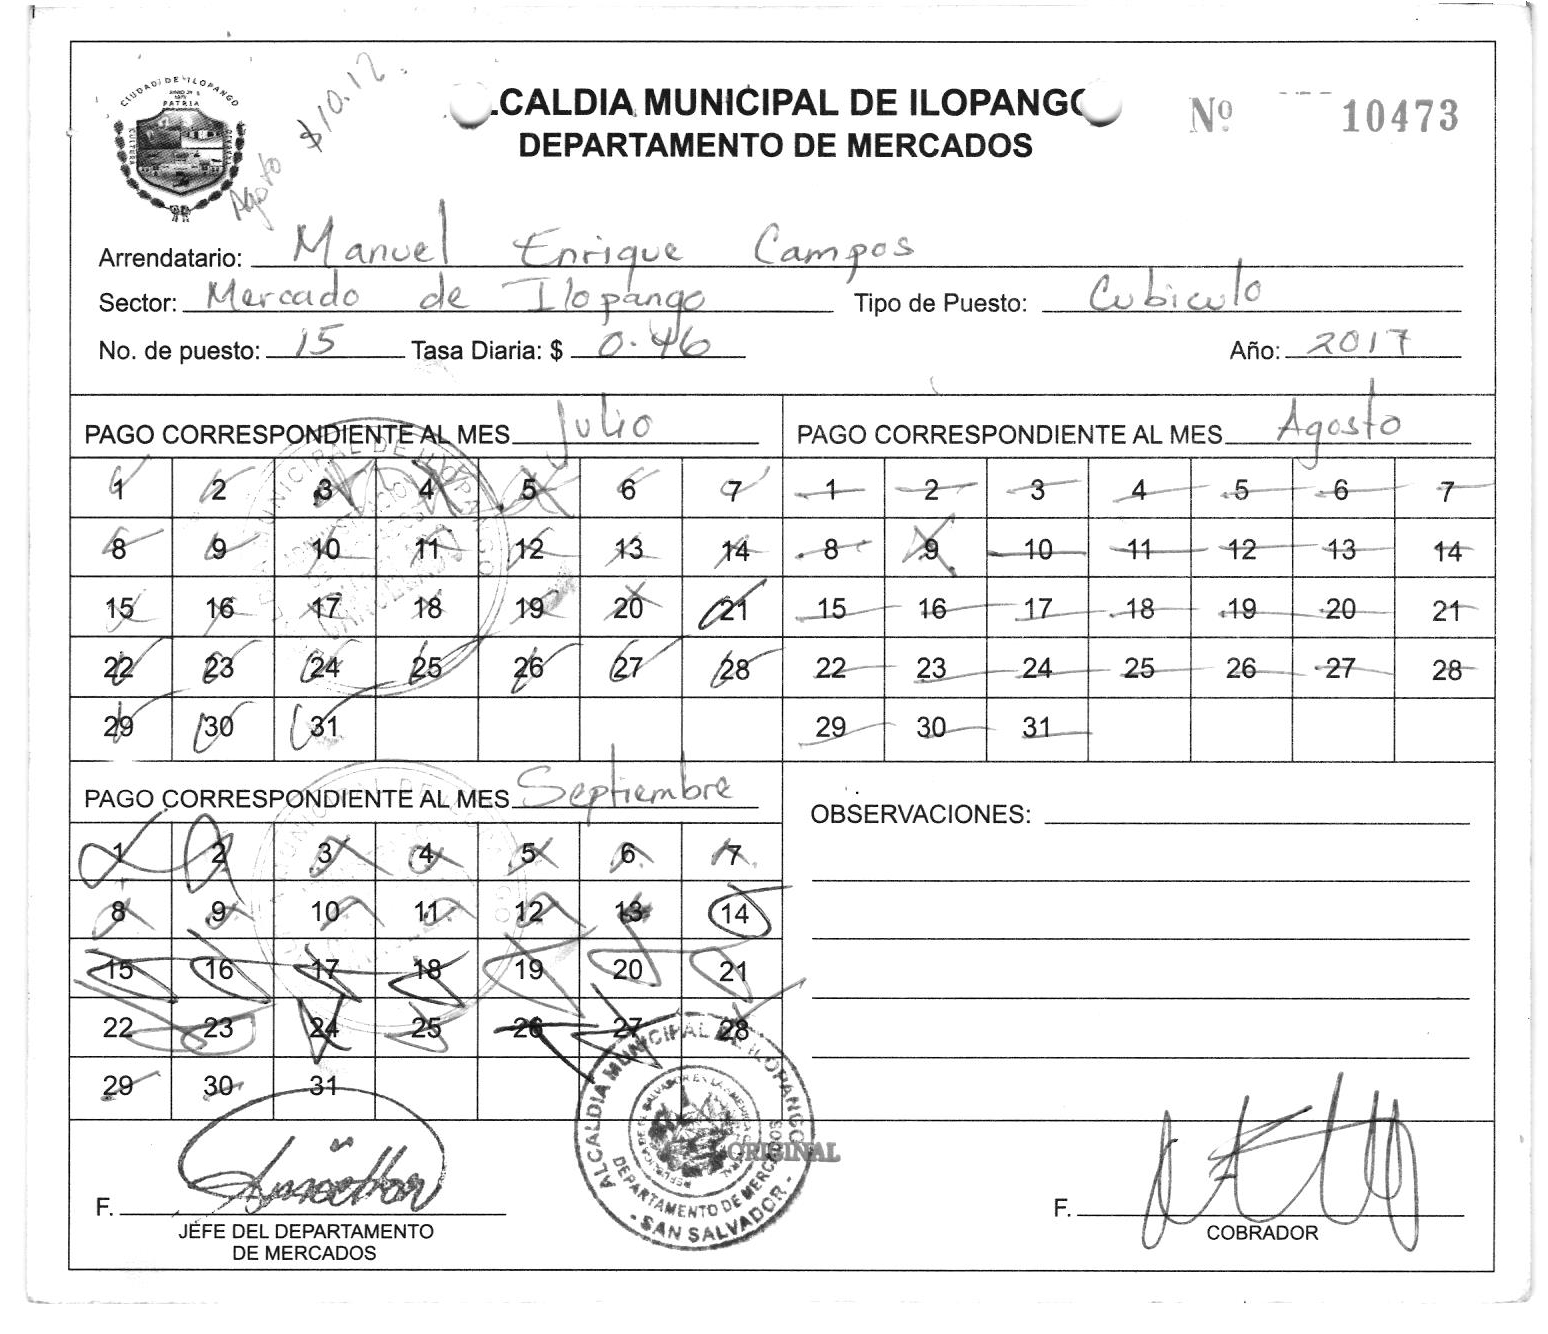 CIUDAD DE ILOPANGO
PATRIA
CULTURA
Agosto $10.12
.CALDIA MUNICIPAL DE ILOPANGO
DEPARTAMENTO DE MERCADOS
Nº 10473
Arrendatario: Manuel Enrique Campos
Sector: Mercado de Ilopango Tipo de Puesto: Cubiculo
No. de puesto: 15 Tasa Diaria: $ 0.46 Año: 2017
PAGO CORRESPONDIENTE AL MES Julio
1 2 3 4 5 6 7
8 9 10 11 12 13 14
15 16 17 18 19 20 21
22 23 24 25 26 27 28
29 30 31
PAGO CORRESPONDIENTE AL MES Agosto
1 2 3 4 5 6 7
8 9 10 11 12 13 14
15 16 17 18 19 20 21
22 23 24 25 26 27 28
29 30 31
PAGO CORRESPONDIENTE AL MES Septiembre
1 2 3 4 5 6 7
8 9 10 11 12 13 14
15 16 17 18 19 20 21
22 23 24 25 26 27 28
29 30 31
OBSERVACIONES:
ALCALDIA MUNICIPAL DE ILOPANGO
DEPARTAMENTO DE MERCADOS
- SAN SALVADOR -
ORIGINAL
F.
JEFE DEL DEPARTAMENTO
DE MERCADOS
F.
COBRADOR